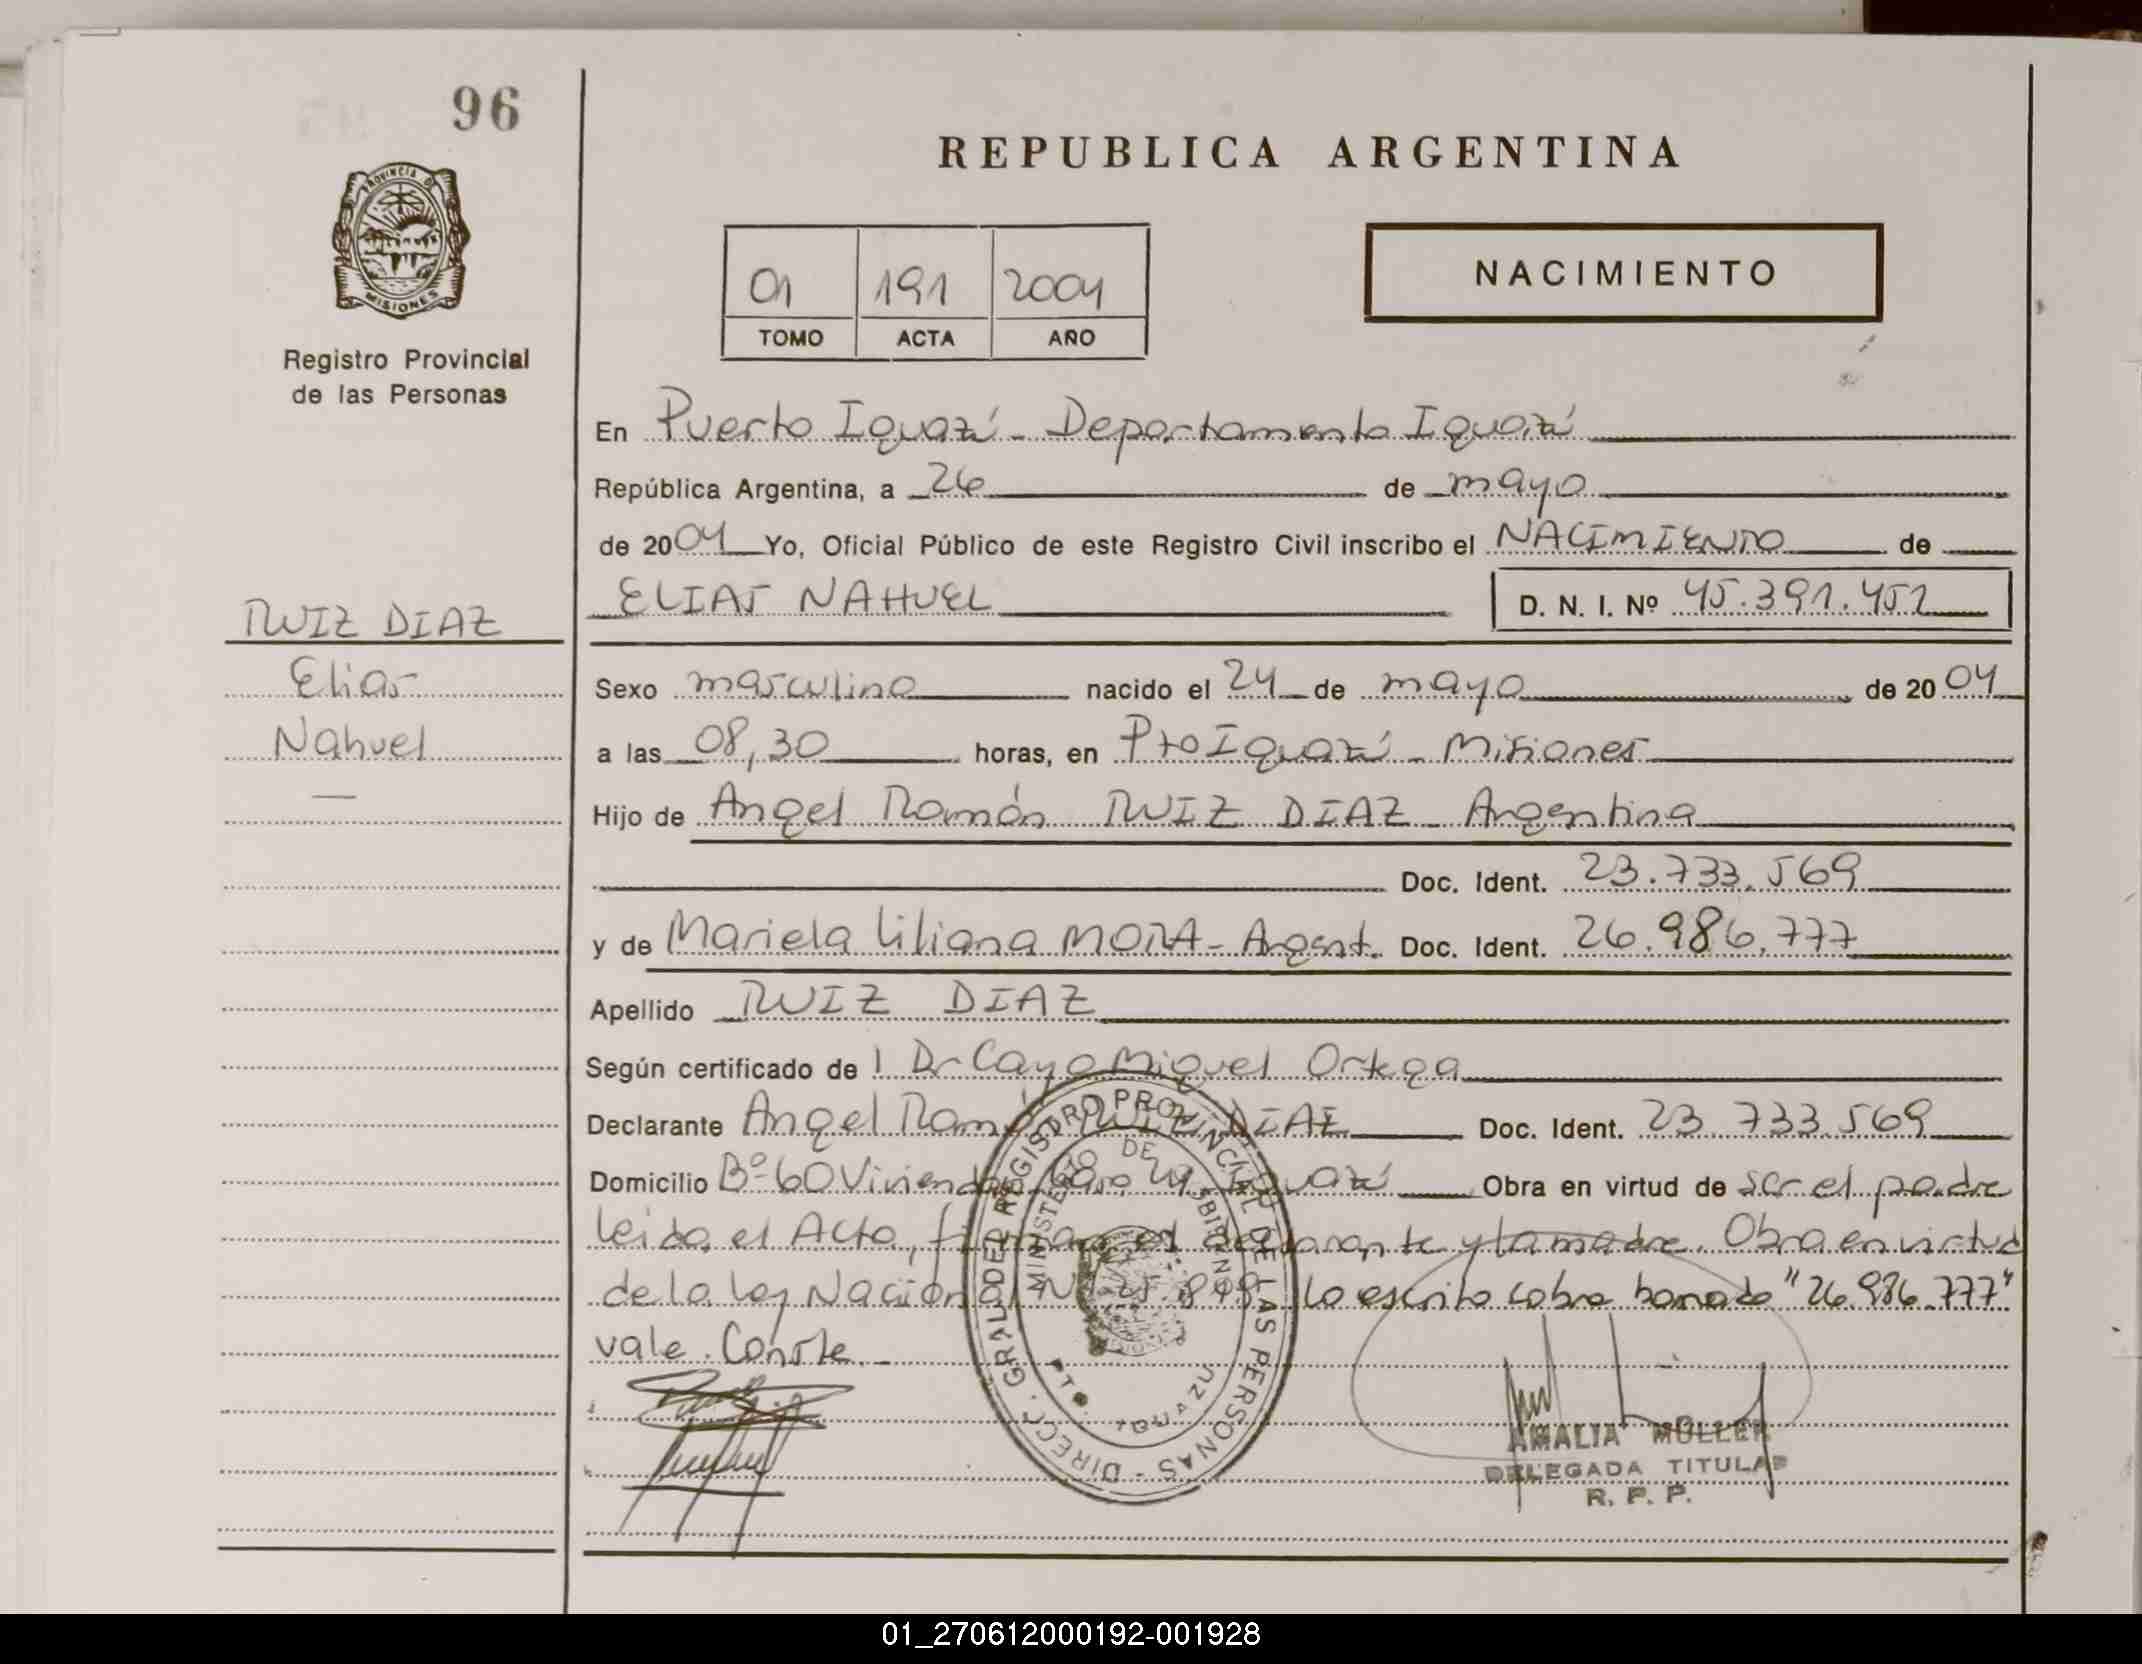 96
REPUBLICA ARGENTINA
PROVINCIA DE
MISIONES
01 191 2004
TOMO ACTA AÑO
NACIMIENTO
Registro Provincial
de las Personas
En Puerto Iguazú - Departamento Iguazú
República Argentina, a 26 de mayo
de 2004 Yo, Oficial Público de este Registro Civil inscribo el NACIMIENTO de
ELIAS NAHUEL D. N. I. Nº 45.391.451
RUIZ DIAZ
Elias
Nahuel
—
Sexo masculino nacido el 24 de mayo de 2004
a las 08,30 horas, en Pto Iguazú - Misiones
Hijo de Angel Ramón RUIZ DIAZ - Argentina
Doc. Ident. 23.733.569
y de Mariela Liliana MORA - Argent. Doc. Ident. 26.986.777
Apellido RUIZ DIAZ
Según certificado de l Dr Cayo Miguel Ortega
Declarante Angel Ramón RUIZ DIAZ Doc. Ident. 23.733.569
Domicilio Bº 60 Viviendas Iguazú Obra en virtud de ser el padre
leida el Acta, firman el declarante y la madre. Obra en virtud
de la ley Nacional Nº lo escrito sobre borrado "26.986.777"
vale. Conste. -
DIRECC. GRAL. DEL REGISTRO PROVINCIAL DE LAS PERSONAS -
MINISTERIO DE GOBIERNO
PTO. IGUAZU
AMALIA MULLER
DELEGADA TITULAR
R. P. P.
01_270612000192-001928